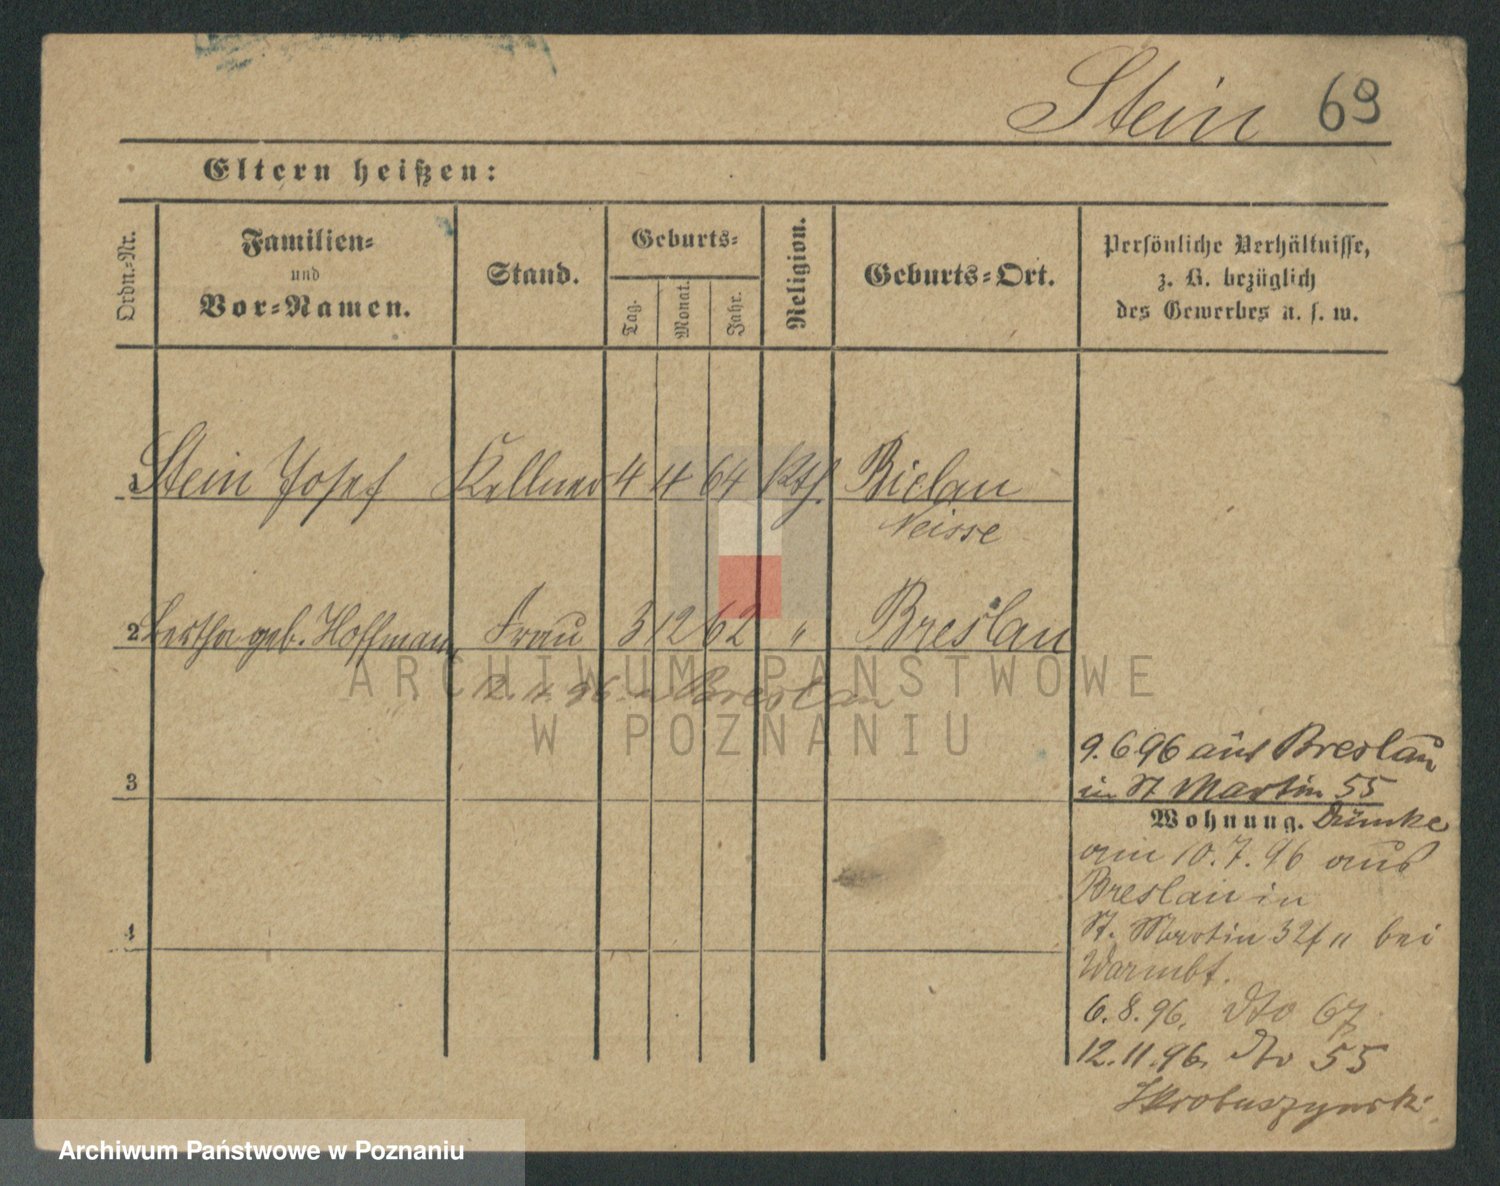 Stein 69
Eltern heißen:
Ordn.-Nr.
Familien-
und
Vor-Namen.
Stand.
Geburts-
Tag.
Monat.
Jahr.
Religion.
Geburts-Ort.
Persönliche Verhältnisse,
z. B. bezüglich
des Gewerbes u. s. w.
1 Stein Josef Kellner 4 4 64 Kth. Bielau
Neisse
2 Bertha geb. Hoffmann Frau 3 12 62 " Breslau
96 n Breslau
3
4
9. 6 96 aus Breslau
in St Martin 55
Wohnung. Dümke
am 10. 7. 96 aus
Breslau in
St. Martin 32 bei
Warmbt.
6. 8. 96. dto 67
12. 11. 96. dto 55
Skrobuszynski
ARCHIWUM PAŃSTWOWE
W POZNANIU
Archiwum Państwowe w Poznaniu